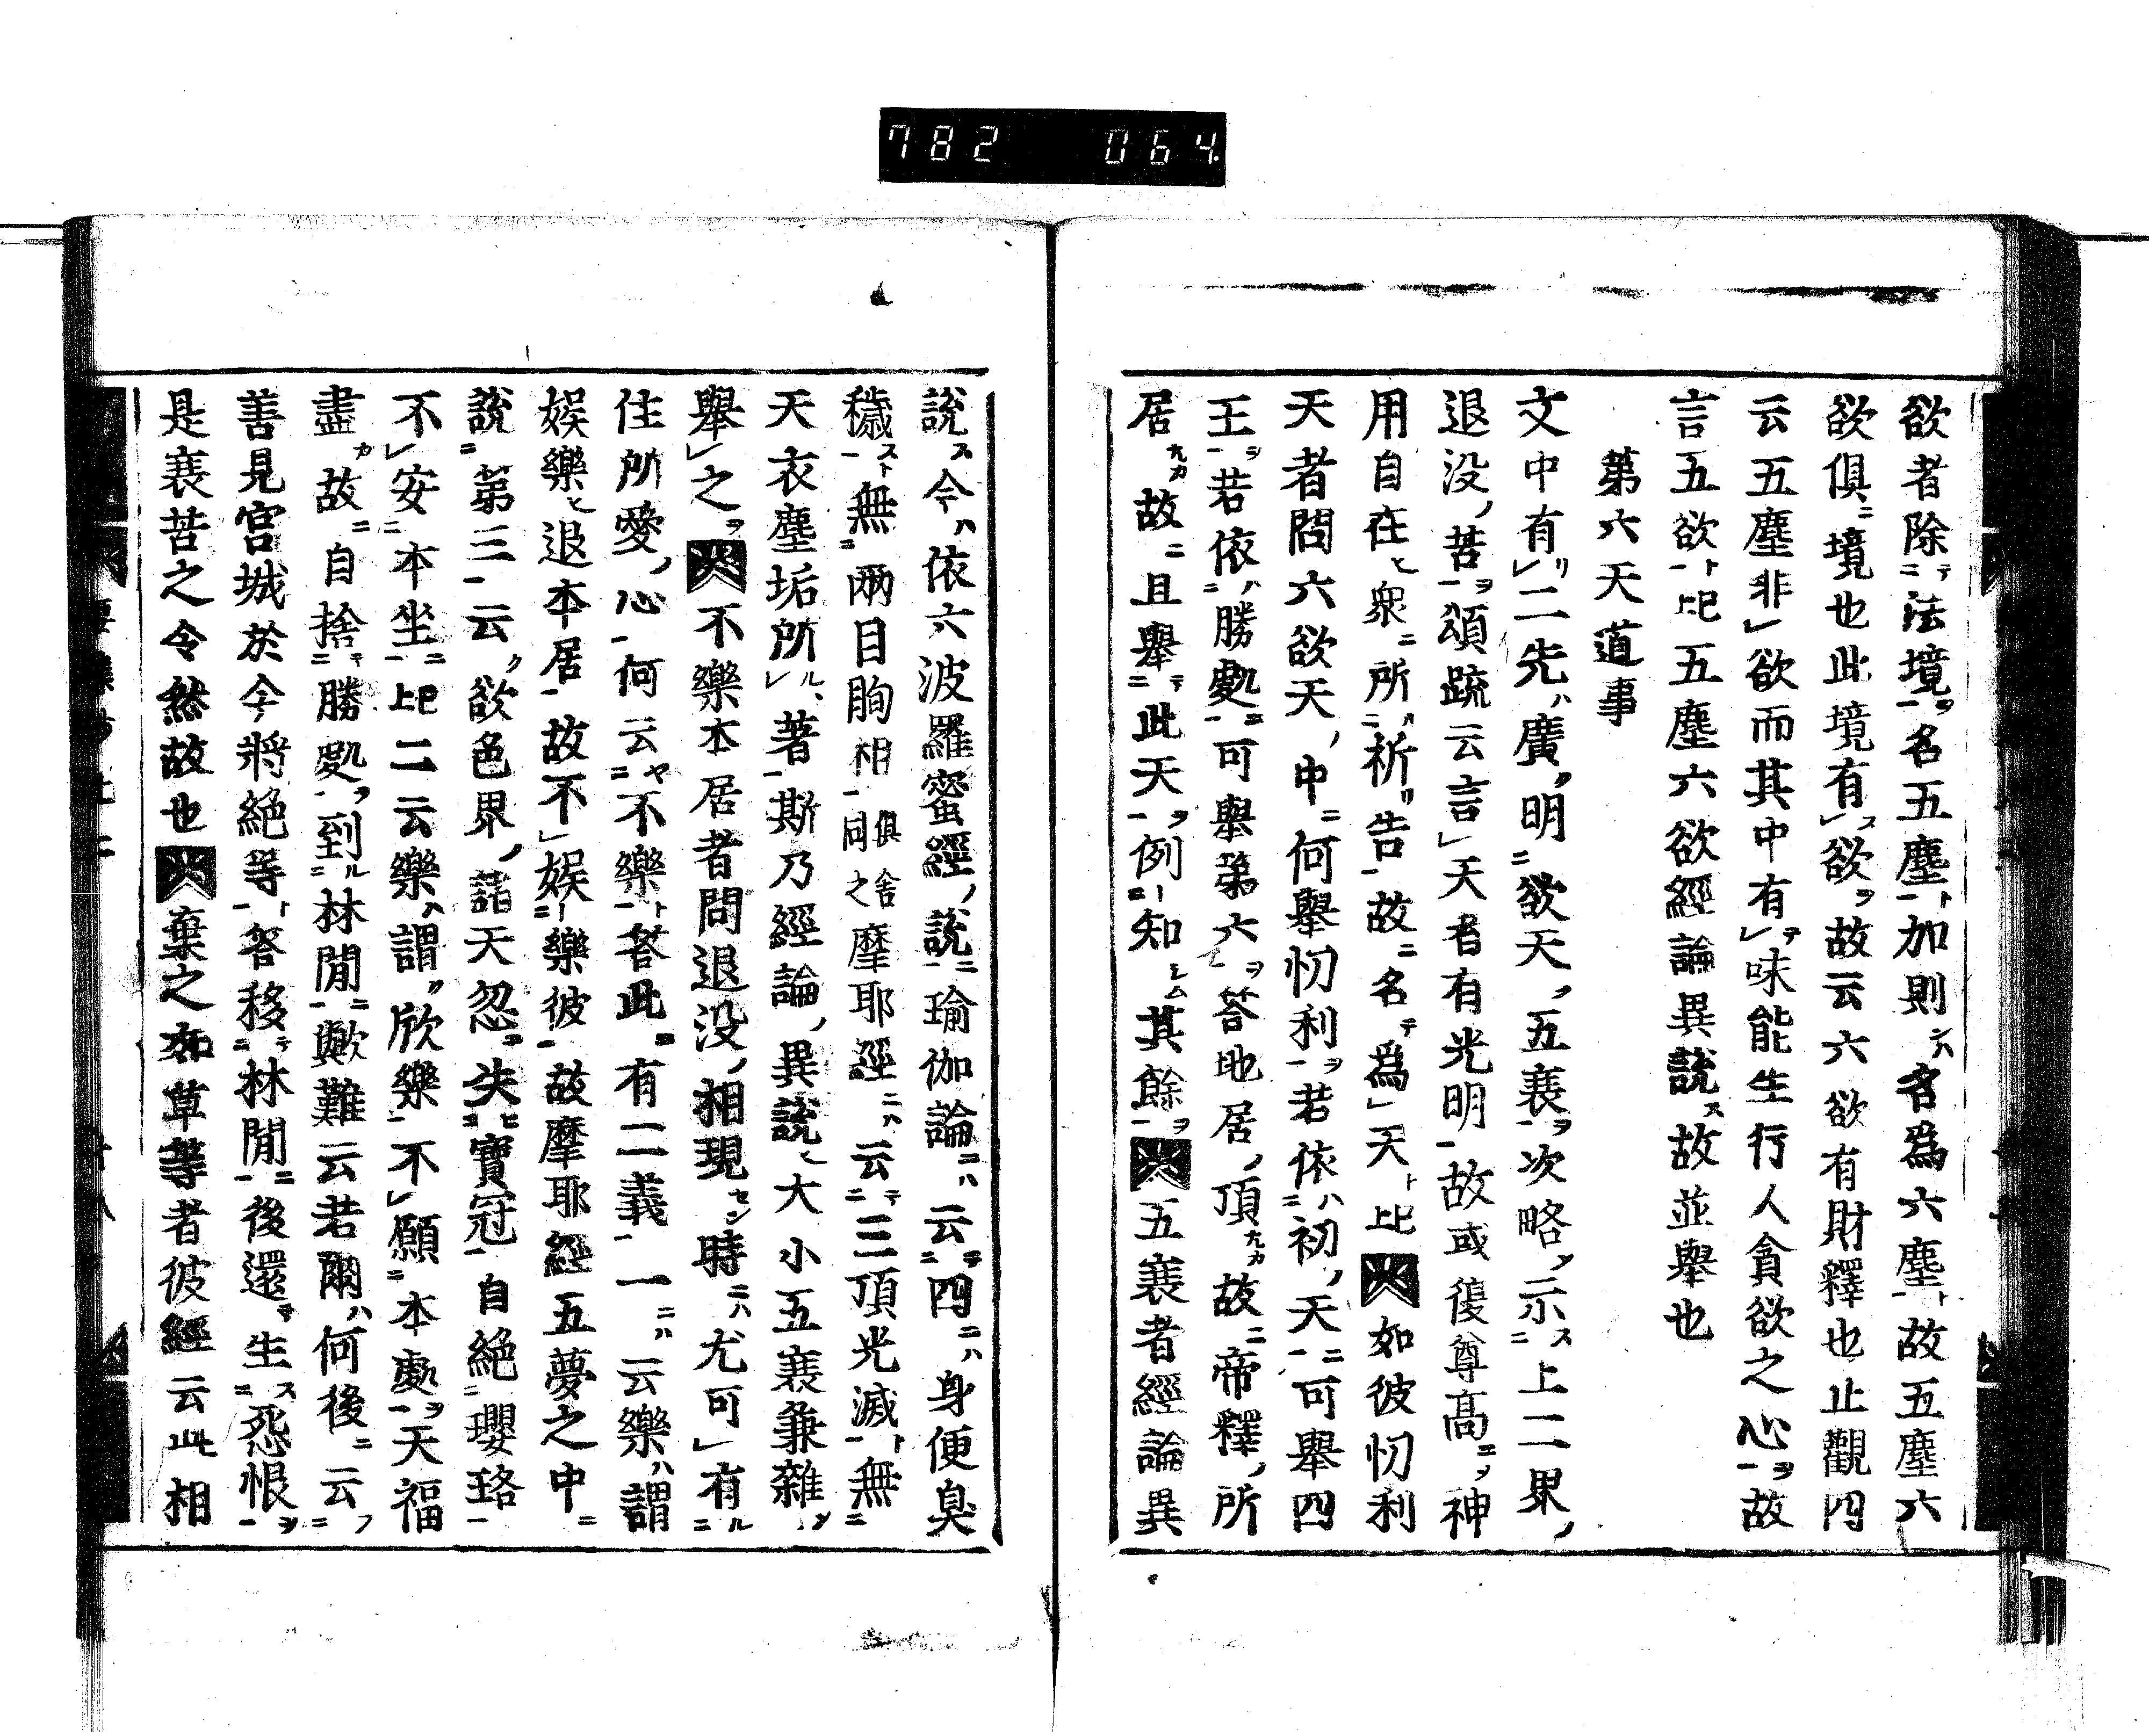 782 064
欲者除法境名五塵加則名為六塵故五塵六
欲俱境也此境有欲故云六欲有財釋也止觀四
云五塵非欲而其中有味能生行人貪欲之心故
言五欲上巳五塵六欲經論異說故並舉也
第六天道事
文中有二先廣明欲天五衰次略示上二界
退没苦頌疏云言天者有光明故或復尊高神
用自在衆所祈告故名為天上巳如彼忉利
天者問六欲天中何舉忉利若依初天可舉四
王若依勝處可舉第六答地居頂故帝釋所
居故且舉此天例知其餘五衰者經論異
說今依六波羅蜜經說瑜伽論云四身便臭
穢無兩目眴相俱舍同之摩耶經云三頂光滅無
天衣塵垢所著斯乃經論異說大小五衰兼雜
舉之不樂本居者問退没相現時尤可有
住所愛心何云不樂答此有二義一云樂謂
娛樂退本居故不娛樂彼故摩耶經五夢之中
說第三云欲色界諸天忽失寶冠自絕瓔珞
不安本坐上巳二云樂謂欣樂不願本處天福
盡故自捨勝處到林間歟難云若爾何後云
善見宮城於今將絕等答移林間後還生怨恨
是衰苦之令然故也棄之如草等者彼經云此相